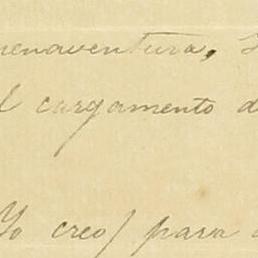 uenaventura,
l cargamento d
Yo creo para